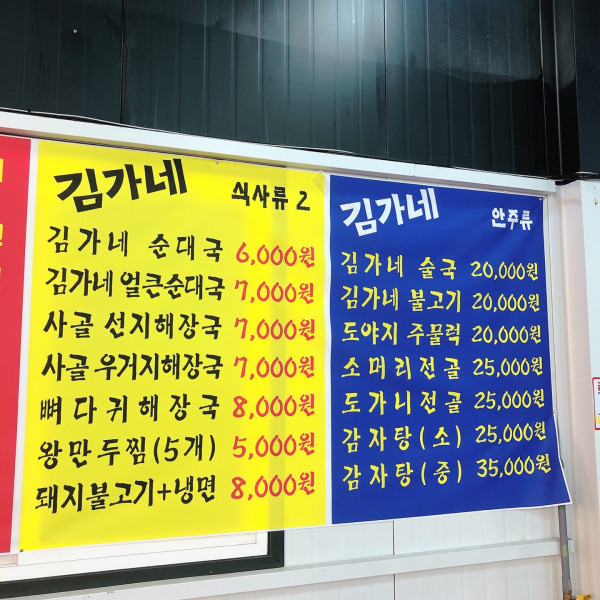 김가네 식사류 2
김가네 순대국 6,000원
김가네얼큰순대국 7,000원
사골 선지해장국 7,000원
사골우거지해장국 7,000원
뼈다귀해장국 8,000원
왕만두찜(5개) 5,000원
돼지불고기+냉면 8,000원
김가네 안주류
김가네 술국 20,000원
김가네 불고기 20,000원
도야지 주물럭 20,000원
소머리전골 25,000원
도가니전골 25,000원
감자탕(소) 25,000원
감자탕(중) 35,000원